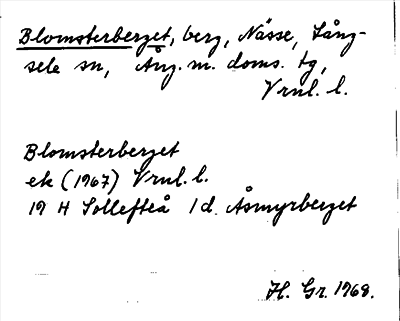 Blomsterberget, berg, Nässe, Lång-
sele sn, Ång. m. doms. tg,
Vrnl. l.
Blomsterberget
ek (1967) Vrnl. l.
19 H Sollefteå 1 d. Åsmyrberget
H. Gr. 1968.